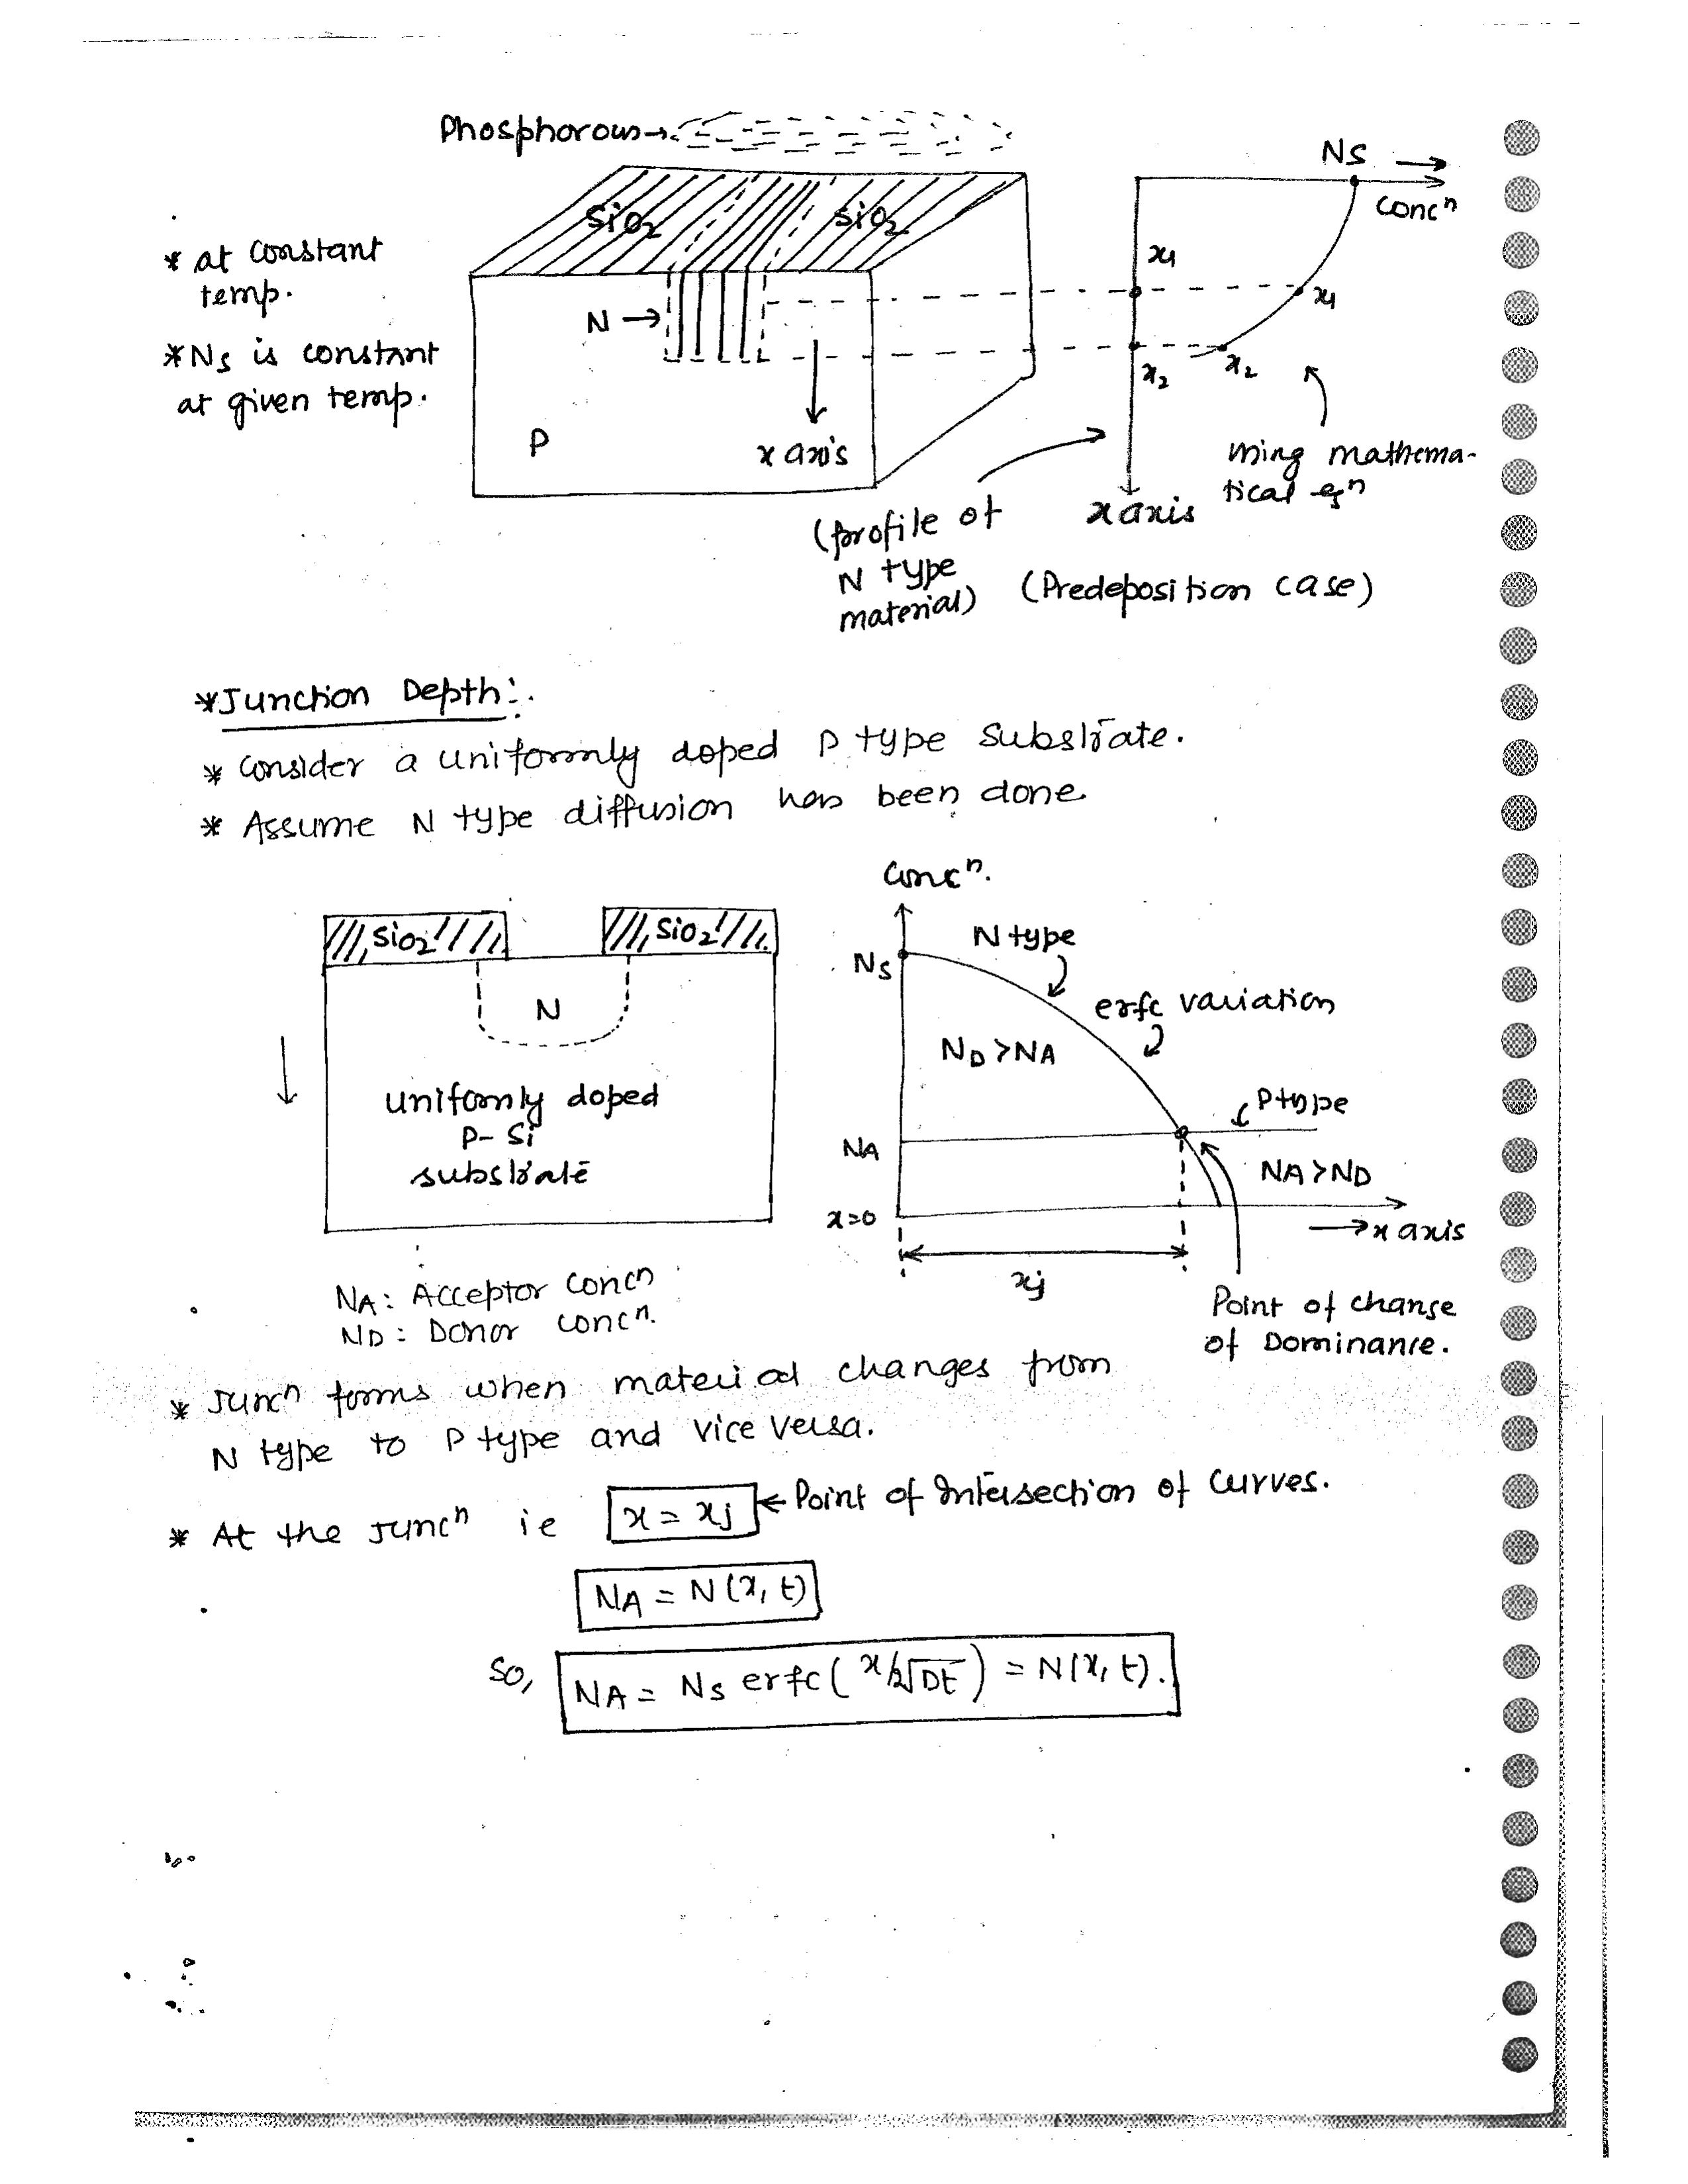 Phosphorous→
SiO2 SiO2
* at constant
temp.
* Ns is constant
at given temp.
N →
P
x axis
Ns →
concn
x1
x1
x2
x2
using mathema-
tical eqn
x axis
(profile of
N type
material)
(Predeposition case)
* Junction Depth:.
* consider a uniformly doped P type substrate.
* Assume N type diffusion has been done
SiO2 SiO2
N
uniformly doped
P- Si
substrate
Concn.
Ns
N type
erfc variation
ND > NA
P type
NA
NA > ND
x=0
→ x axis
xj
Point of change
of Dominance.
NA: Acceptor concn
ND: Donor concn.
* Juncn forms when material changes from
N type to P type and vice versa.
* At the juncn ie x = xj ← Point of Intersection of curves.
NA = N(x, t)
so, NA = Ns erfc( x/2√Dt ) = N(x, t).